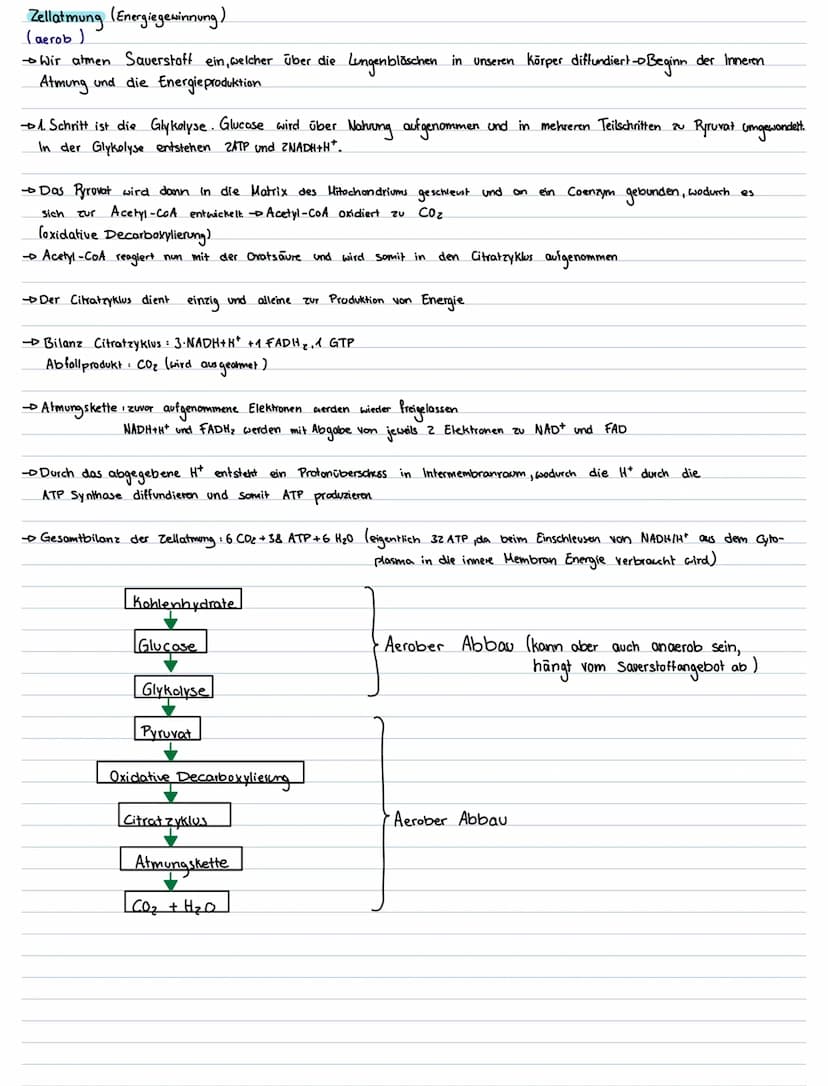 Zellatmung (Energiegewinnung)
(aerob)
→ Wir atmen Sauerstoff ein, welcher über die Lungenbläschen in unseren Körper diffundiert → Beginn der Inneren
Atmung und die Energieproduktion
→ 1. Schritt ist die Glykolyse. Glucose wird über Nahrung aufgenommen und in mehreren Teilschritten zu Pyruvat umgewandelt.
In der Glykolyse entstehen 2ATP und 2NADH+H⁺.
→ Das Pyrovat wird dann in die Matrix des Mitochondriums geschleust und an ein Coenzym gebunden, wodurch es
sich zur Acetyl-CoA entwickelt → Acetyl-CoA oxidiert zu CO₂
(oxidative Decarboxylierung)
→ Acetyl-CoA reagiert nun mit der Oxatsäure und wird somit in den Citratzyklus aufgenommen
→ Der Citratzyklus dient einzig und alleine zur Produktion von Energie
→ Bilanz Citratzyklus: 3·NADH+H⁺ +1 FADH₂, 1 GTP
Abfallprodukt: CO₂ (wird ausgeatmet)
→ Atmungskette: zuvor aufgenommene Elektronen werden wieder freigelassen
NADH+H⁺ und FADH₂ werden mit Abgabe von jeweils 2 Elektronen zu NAD⁺ und FAD
→ Durch das abgegebene H⁺ entsteht ein Protonüberschuss in Intermembranraum, wodurch die H⁺ durch die
ATP Synthase diffundieren und somit ATP produzieren
→ Gesamtbilanz der Zellatmung: 6 CO₂ + 38 ATP + 6 H₂O (eigentlich 32 ATP, da beim Einschleusen von NADH/H⁺ aus dem Cyto-
plasma in die innere Membran Energie verbraucht wird)
Kohlenhydrate
Glucose
Aerober Abbau (kann aber auch anaerob sein,
hängt vom Sauerstoffangebot ab)
Glykolyse
Pyruvat
Oxidative Decarboxylierung
Citratzyklus
Aerober Abbau
Atmungskette
CO₂ + H₂O